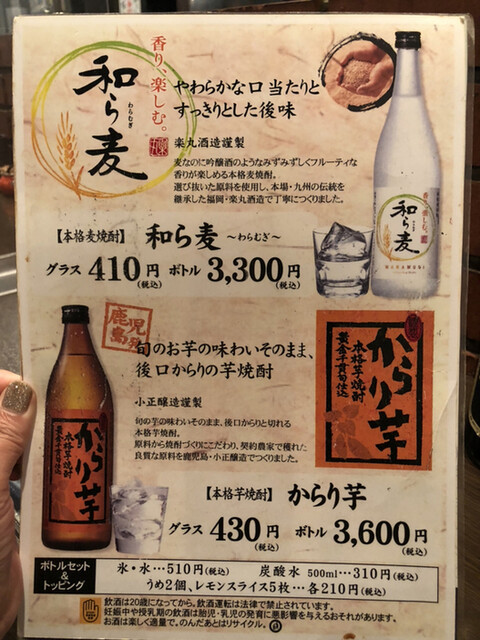 香り、楽しむ。
和ら麦
わらむぎ
やわらかな口当たりと
すっきりとした後味
楽丸酒造謹製
麦なのに吟醸酒のようなみずみずしくフルーティな
香りが楽しめる本格麦焼酎。
選び抜いた原料を使用し、本場・九州の伝統を
継承した福岡・楽丸酒造で丁寧につくりました。
香り、楽しむ。
和ら麦
【本格麦焼酎】 和ら麦 〜わらむぎ〜
グラス 410円(税込) ボトル 3,300円(税込)
鹿児島発
旬のお芋の味わいそのまま、
後口からりの芋焼酎
小正醸造謹製
旬の芋の味わいそのまま、後口からりと切れる
本格芋焼酎。
原料から焼酎づくりにこだわり、契約農家で穫れた
良質な原料を鹿児島・小正醸造でつくりました。
からり芋
本格芋焼酎
黄金千貫旬仕込
からり芋
本格芋焼酎
黄金千貫旬仕込
【本格芋焼酎】 からり芋
グラス 430円(税込) ボトル 3,600円(税込)
ボトルセット
&
トッピング
氷・水…510円(税込) 炭酸水 500ml…310円(税込)
うめ2個、レモンスライス5枚…各210円(税込)
飲酒は20歳になってから。飲酒運転は法律で禁止されています。
妊娠中や授乳期の飲酒は胎児・乳児の発育に悪影響を与えるおそれがあります。
お酒は楽しく適量で。のんだあとはリサイクル。